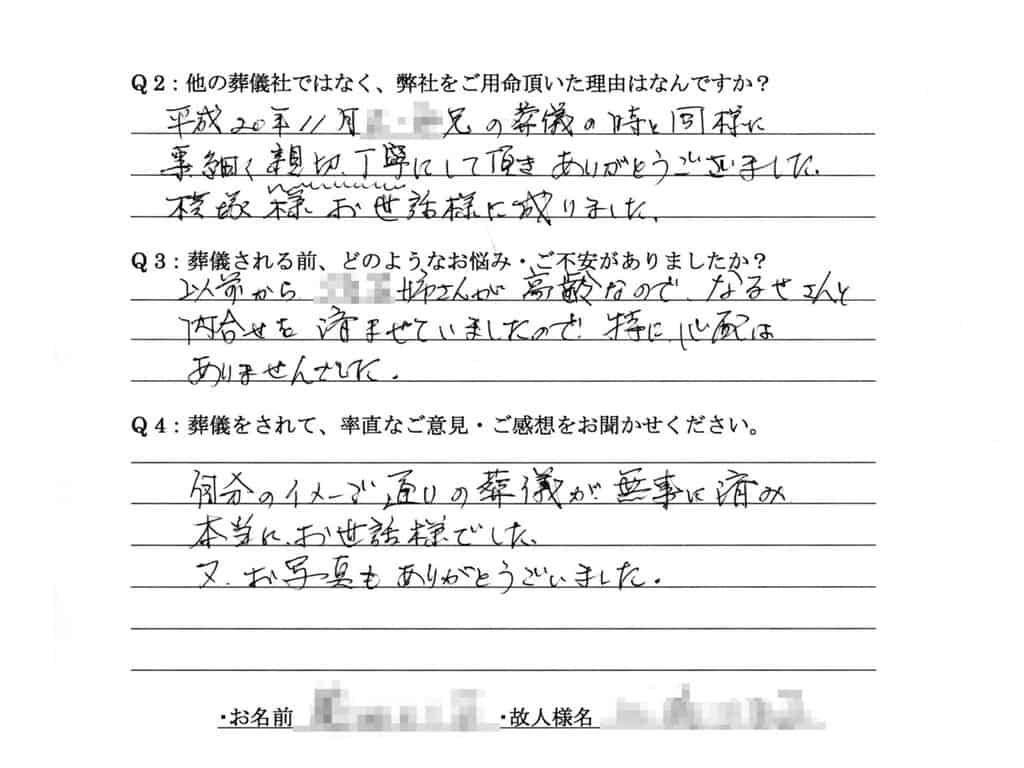 Q2：他の葬儀社ではなく、弊社をご用命頂いた理由はなんですか？
平成20年11月 兄の葬儀の時と同様に
事細く親切、丁寧にして頂きありがとうございました。
様お世話様に成りました。
Q3：葬儀される前、どのようなお悩み・ご不安がありましたか？
以前から 姉さんが高齢なので、なるせさんと
打合せを済ませていましたので、特に心配は
ありませんでした。
Q4：葬儀をされて、率直なご意見・ご感想をお聞かせください。
自分のイメージ通りの葬儀が無事に済み
本当に、お世話様でした。
又、お写真もありがとうございました。
・お名前 ・故人様名